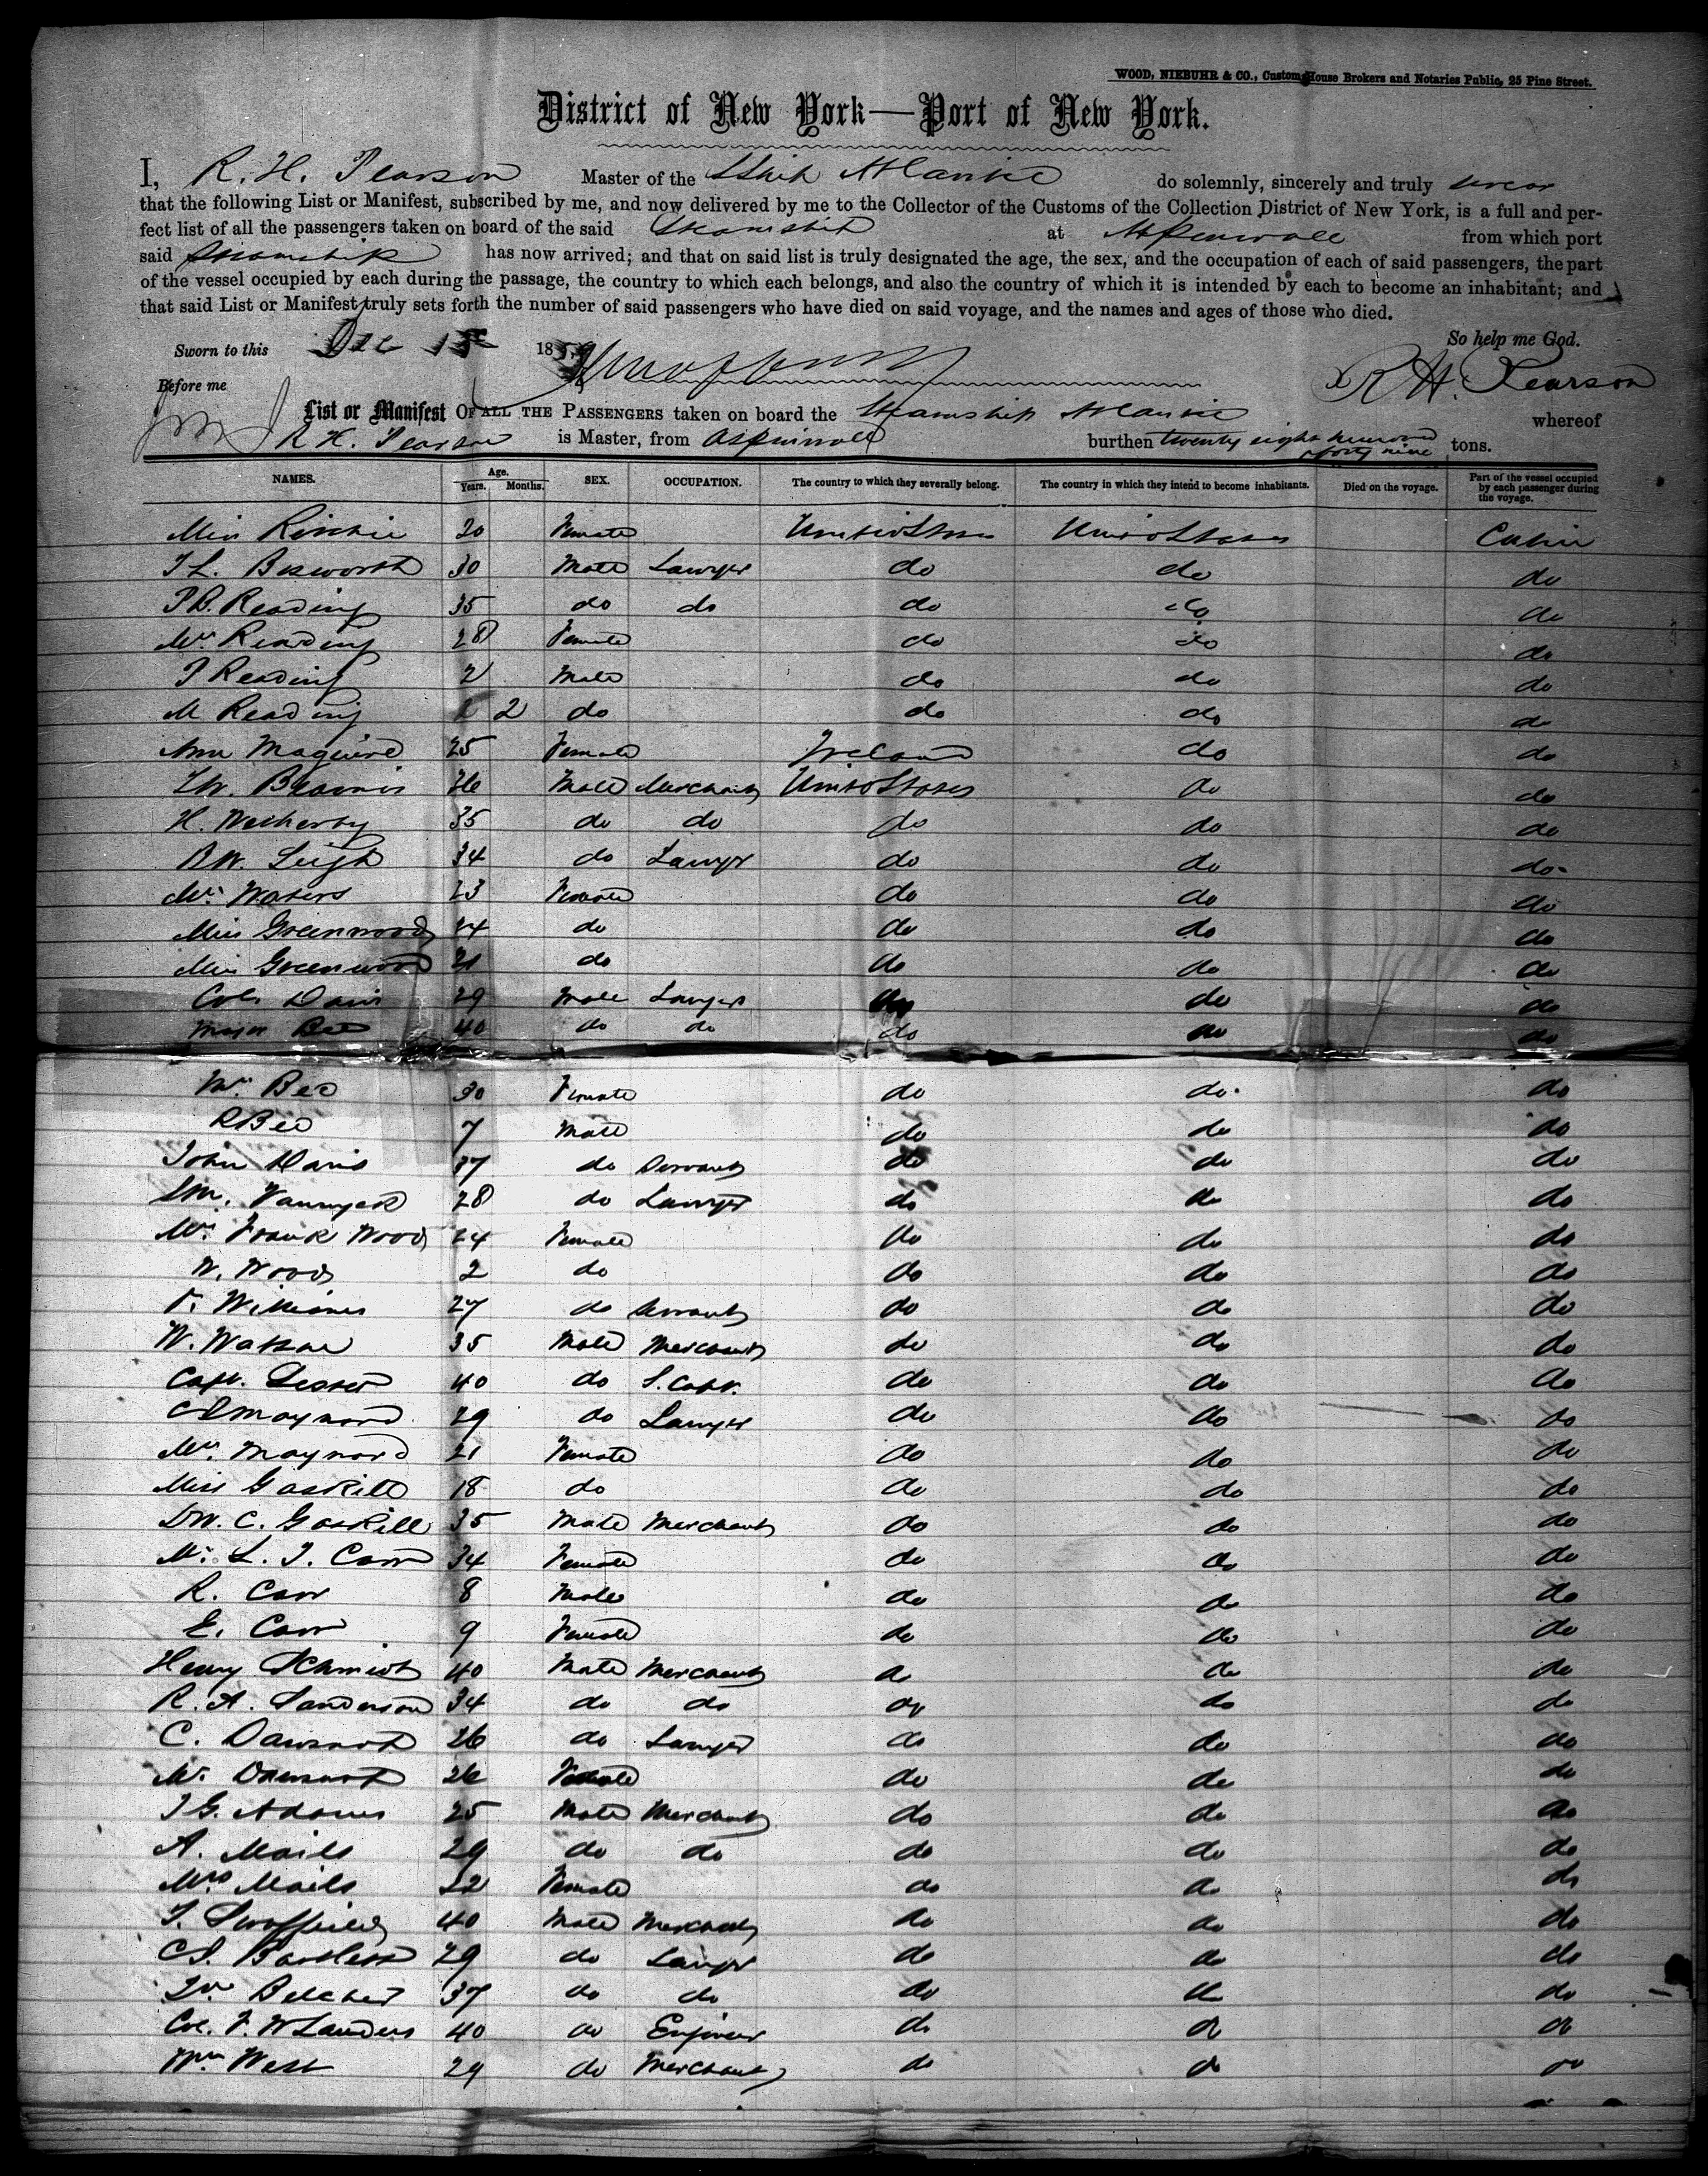 WOOD, NIEBUHR & CO., Custom House Brokers and Notaries Public, 25 Pine Street.
District of New York—Port of New York.
I, R. H. Pearson Master of the SShip Atlantic do solemnly, sincerely and truly swear
that the following List or Manifest, subscribed by me, and now delivered by me to the Collector of the Customs of the Collection District of New York, is a full and per-
fect list of all the passengers taken on board of the said Steamship at Aspinwall from which port
said Steamship has now arrived; and that on said list is truly designated the age, the sex, and the occupation of each of said passengers, the part
of the vessel occupied by each during the passage, the country to which each belongs, and also the country of which it is intended by each to become an inhabitant; and
that said List or Manifest truly sets forth the number of said passengers who have died on said voyage, and the names and ages of those who died.
Sworn to this Dec 185 So help me God.
Before me R H. Pearson
List or Manifest OF ALL THE PASSENGERS taken on board the Steamship Atlantic whereof
R H. Pearson is Master, from Aspinwall burthen twenty eight hundred forty nine tons.
NAMES. Age. Years. Months. SEX. OCCUPATION. The country to which they severally belong. The country in which they intend to become inhabitants. Died on the voyage. Part of the vessel occupied by each passenger during the voyage.
Miss Ritchie 20 Female United States United States Cabin
T L. Bosworth 30 Male Lawyer do do do
P B. Reading 35 do do do do do
Mrs Reading 28 Female do do do
Reading 2 Male do do do
M Reading 2 do do do do
Ann Maguire 25 Female Ireland do do
26 Male Merchant United States do do
H. Wetherby 35 do do do do do
B W. Leigh 34 do Lawyer do do do
Mrs Waters 23 Female do do do
Miss Greenwood 24 do do do do
Miss Greenwood 21 do do do do
Col. Davis 29 Male Lawyer do do do
Major Bee 40 do do do do do
Mrs Bee 30 Female do do do
R Bee 7 Male do do do
John Davis 37 do Servant do do do
28 do Lawyer do do do
Mrs Frank Wood 24 Female do do do
W. Wood 2 do do do do
Williams 27 do Servant do do do
W. Watson 35 Male Merchant do do do
Capt. 40 do S. Capt. do do do
Maynard 29 do Lawyer do do do
Mrs Maynard 21 Female do do do
Miss Gaskill 18 do do do do
DW. C. Gaskill 35 Male Merchant do do do
Mrs L. T. Carr 34 Female do do do
R. Carr 8 Male do do do
E. Carr 9 Female do do do
Henry Schmidt 40 Male Merchant do do do
R. A. Sanderson 34 do do do do do
C. 26 do Lawyer do do do
Mrs 26 Female do do do
J G. Adams 25 Male Merchant do do do
A. Mails 29 do do do do do
Mrs Mails 22 Female do do do
40 Male Merchant do do do
Bartlett 29 do Lawyer do do do
Dr Belcher 37 do do do do do
Col. F. W Landers 40 do Engineer do do do
Wm West 29 do Merchant do do do